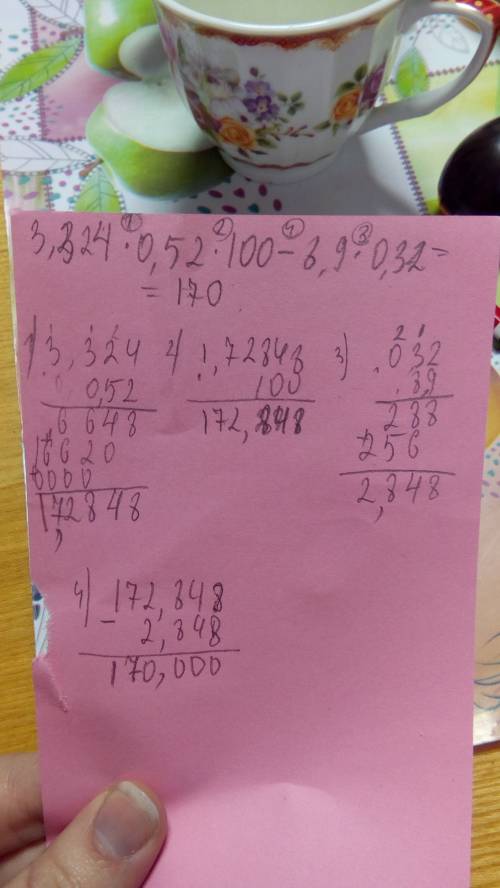 3,324 · 0,52 · 100 − 8,9 · 0,32 =
① ② ④ ③
= 170
1) 3,324
0,52
6648
16620
0000
1,72848
2) 1,72848
100
172,848
3) 032
89
288
256
2,848
4) 172,848
− 2,848
170,000